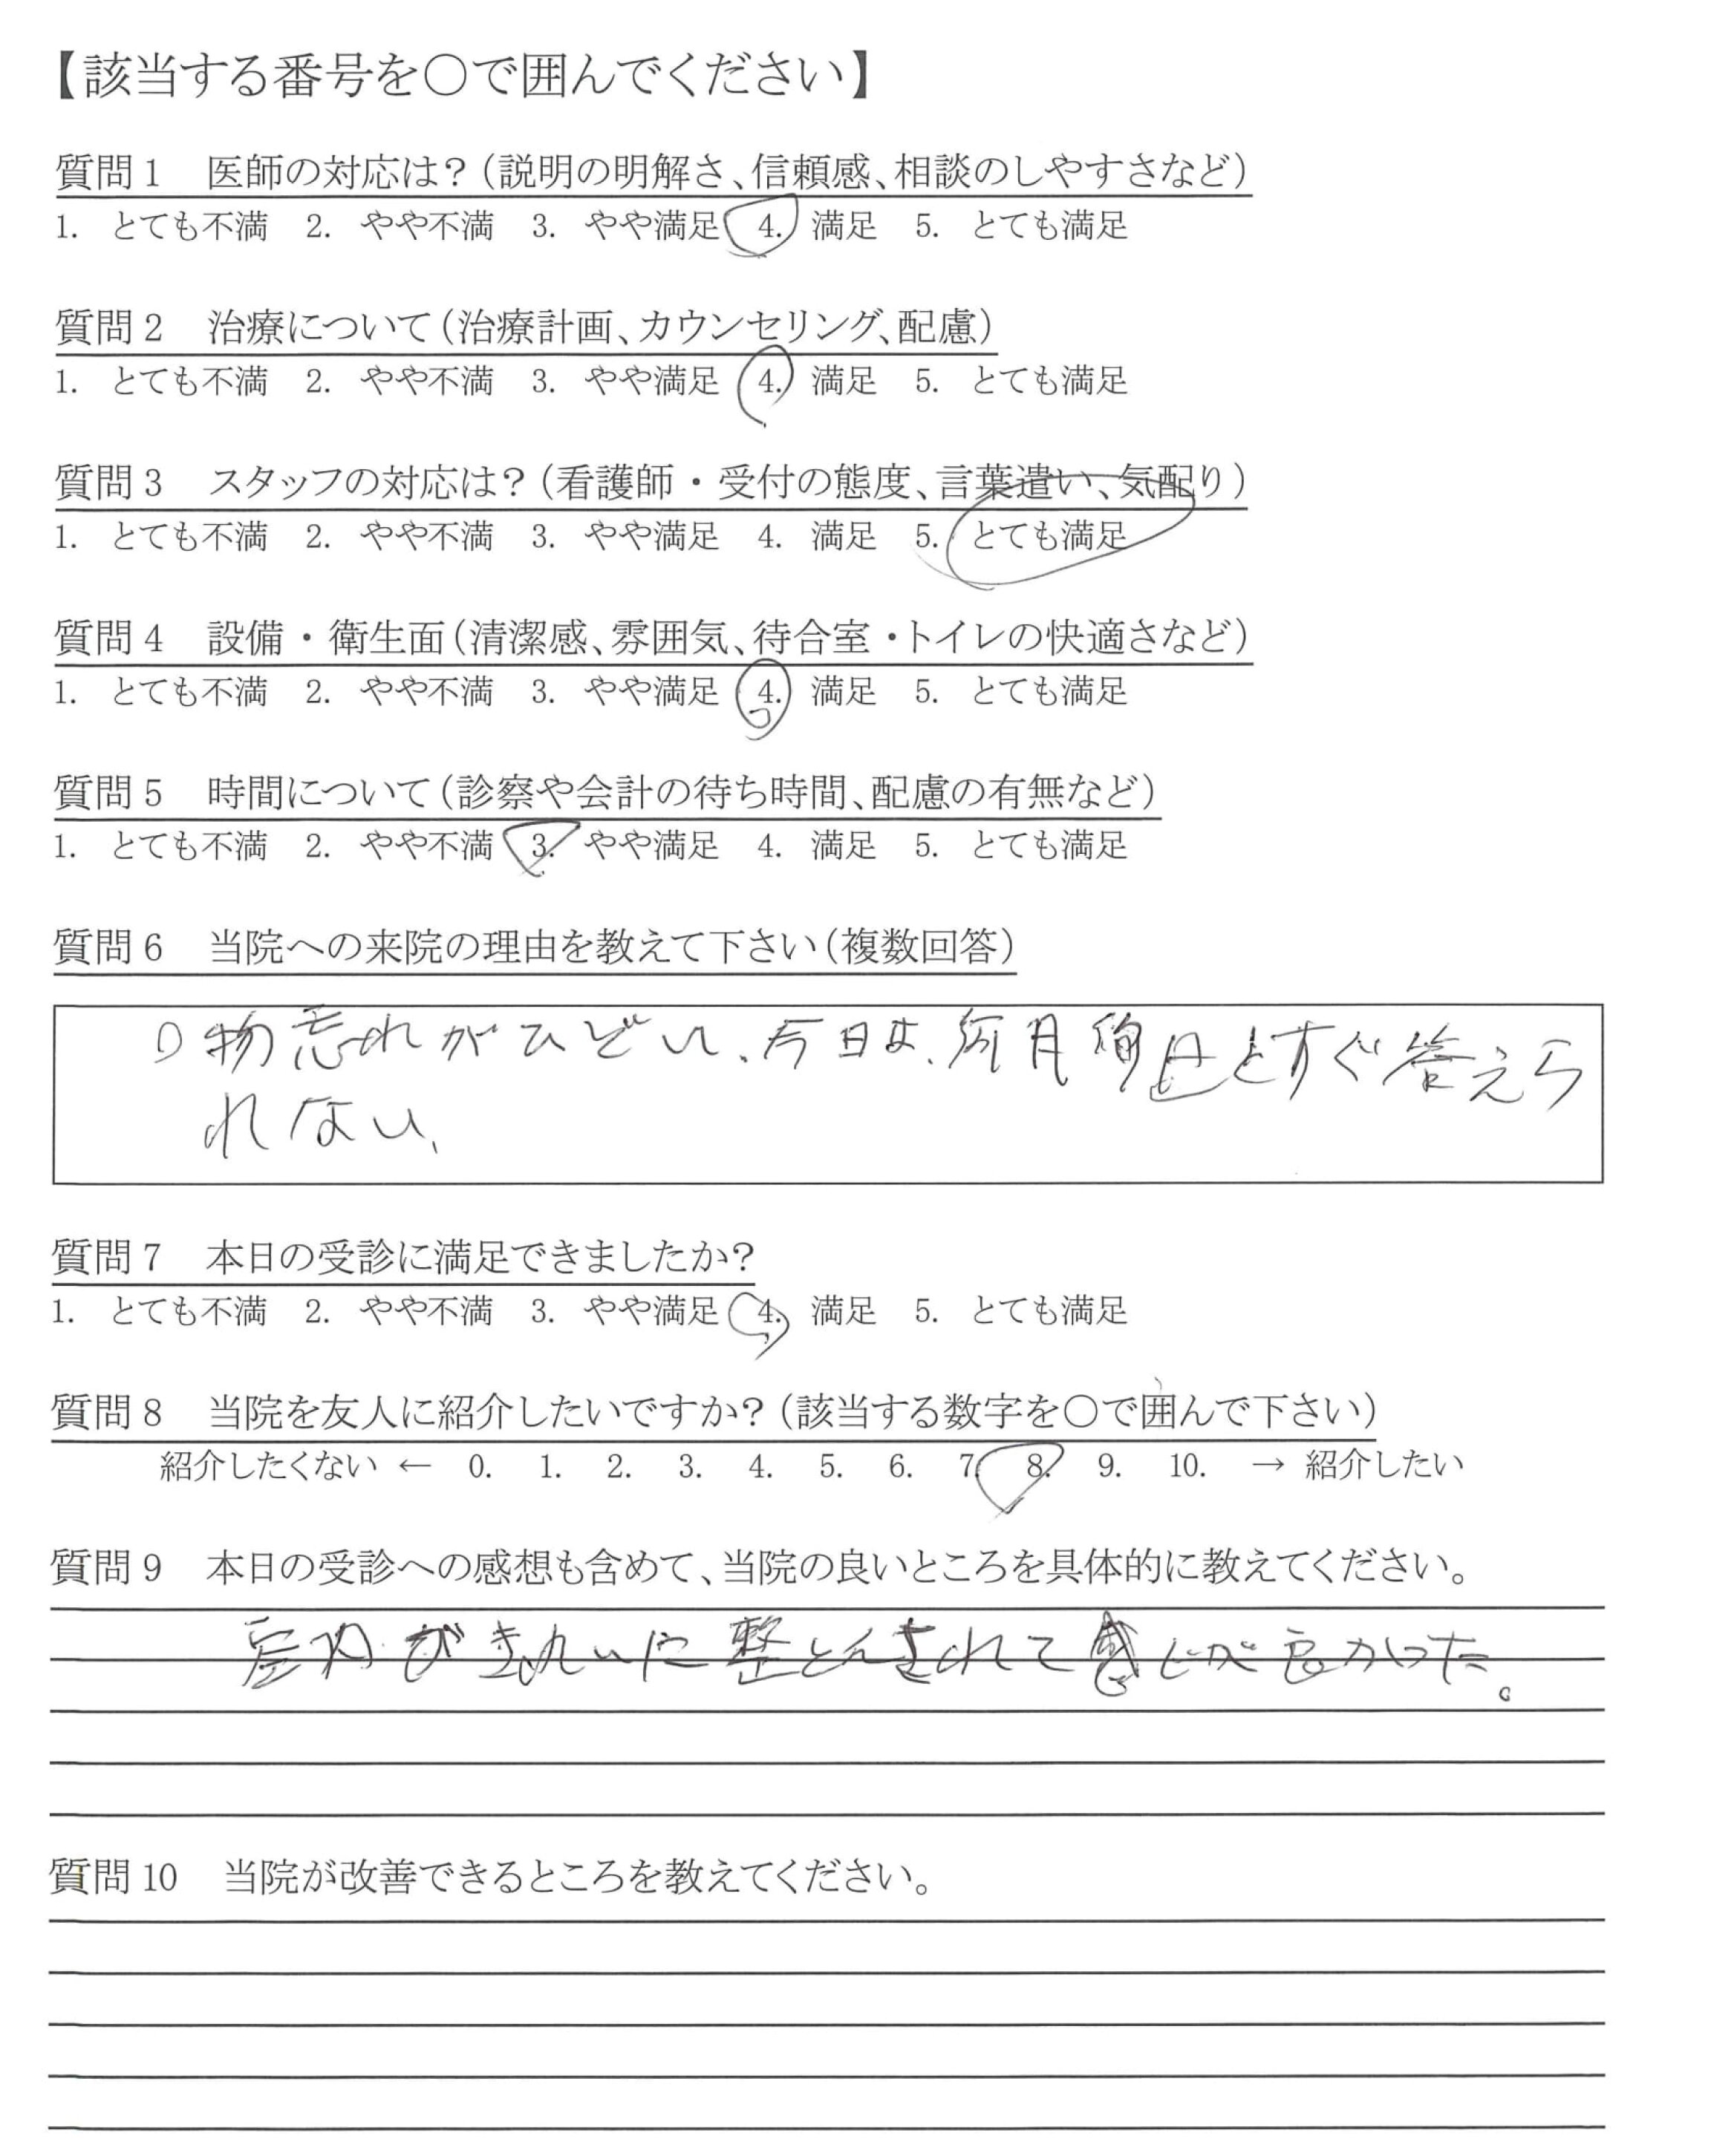 【該当する番号を〇で囲んでください】
質問1　医師の対応は？（説明の明解さ、信頼感、相談のしやすさなど）
1.　とても不満　2.　やや不満　3.　やや満足　4.　満足　5.　とても満足
質問2　治療について（治療計画、カウンセリング、配慮）
1.　とても不満　2.　やや不満　3.　やや満足　4.　満足　5.　とても満足
質問3　スタッフの対応は？（看護師・受付の態度、言葉遣い、気配り）
1.　とても不満　2.　やや不満　3.　やや満足　4.　満足　5.　とても満足
質問4　設備・衛生面（清潔感、雰囲気、待合室・トイレの快適さなど）
1.　とても不満　2.　やや不満　3.　やや満足　4.　満足　5.　とても満足
質問5　時間について（診察や会計の待ち時間、配慮の有無など）
1.　とても不満　2.　やや不満　3.　やや満足　4.　満足　5.　とても満足
質問6　当院への来院の理由を教えて下さい（複数回答）
物忘れがひどい、今日は、何月何日とすぐ答えら
れない、
質問7　本日の受診に満足できましたか？
1.　とても不満　2.　やや不満　3.　やや満足　4.　満足　5.　とても満足
質問8　当院を友人に紹介したいですか？（該当する数字を〇で囲んで下さい）
紹介したくない ← 0.　1.　2.　3.　4.　5.　6.　7.　8.　9.　10.　→ 紹介したい
質問9　本日の受診への感想も含めて、当院の良いところを具体的に教えてください。
室内がきれいに整とんされて感じが良かった。
質問10　当院が改善できるところを教えてください。